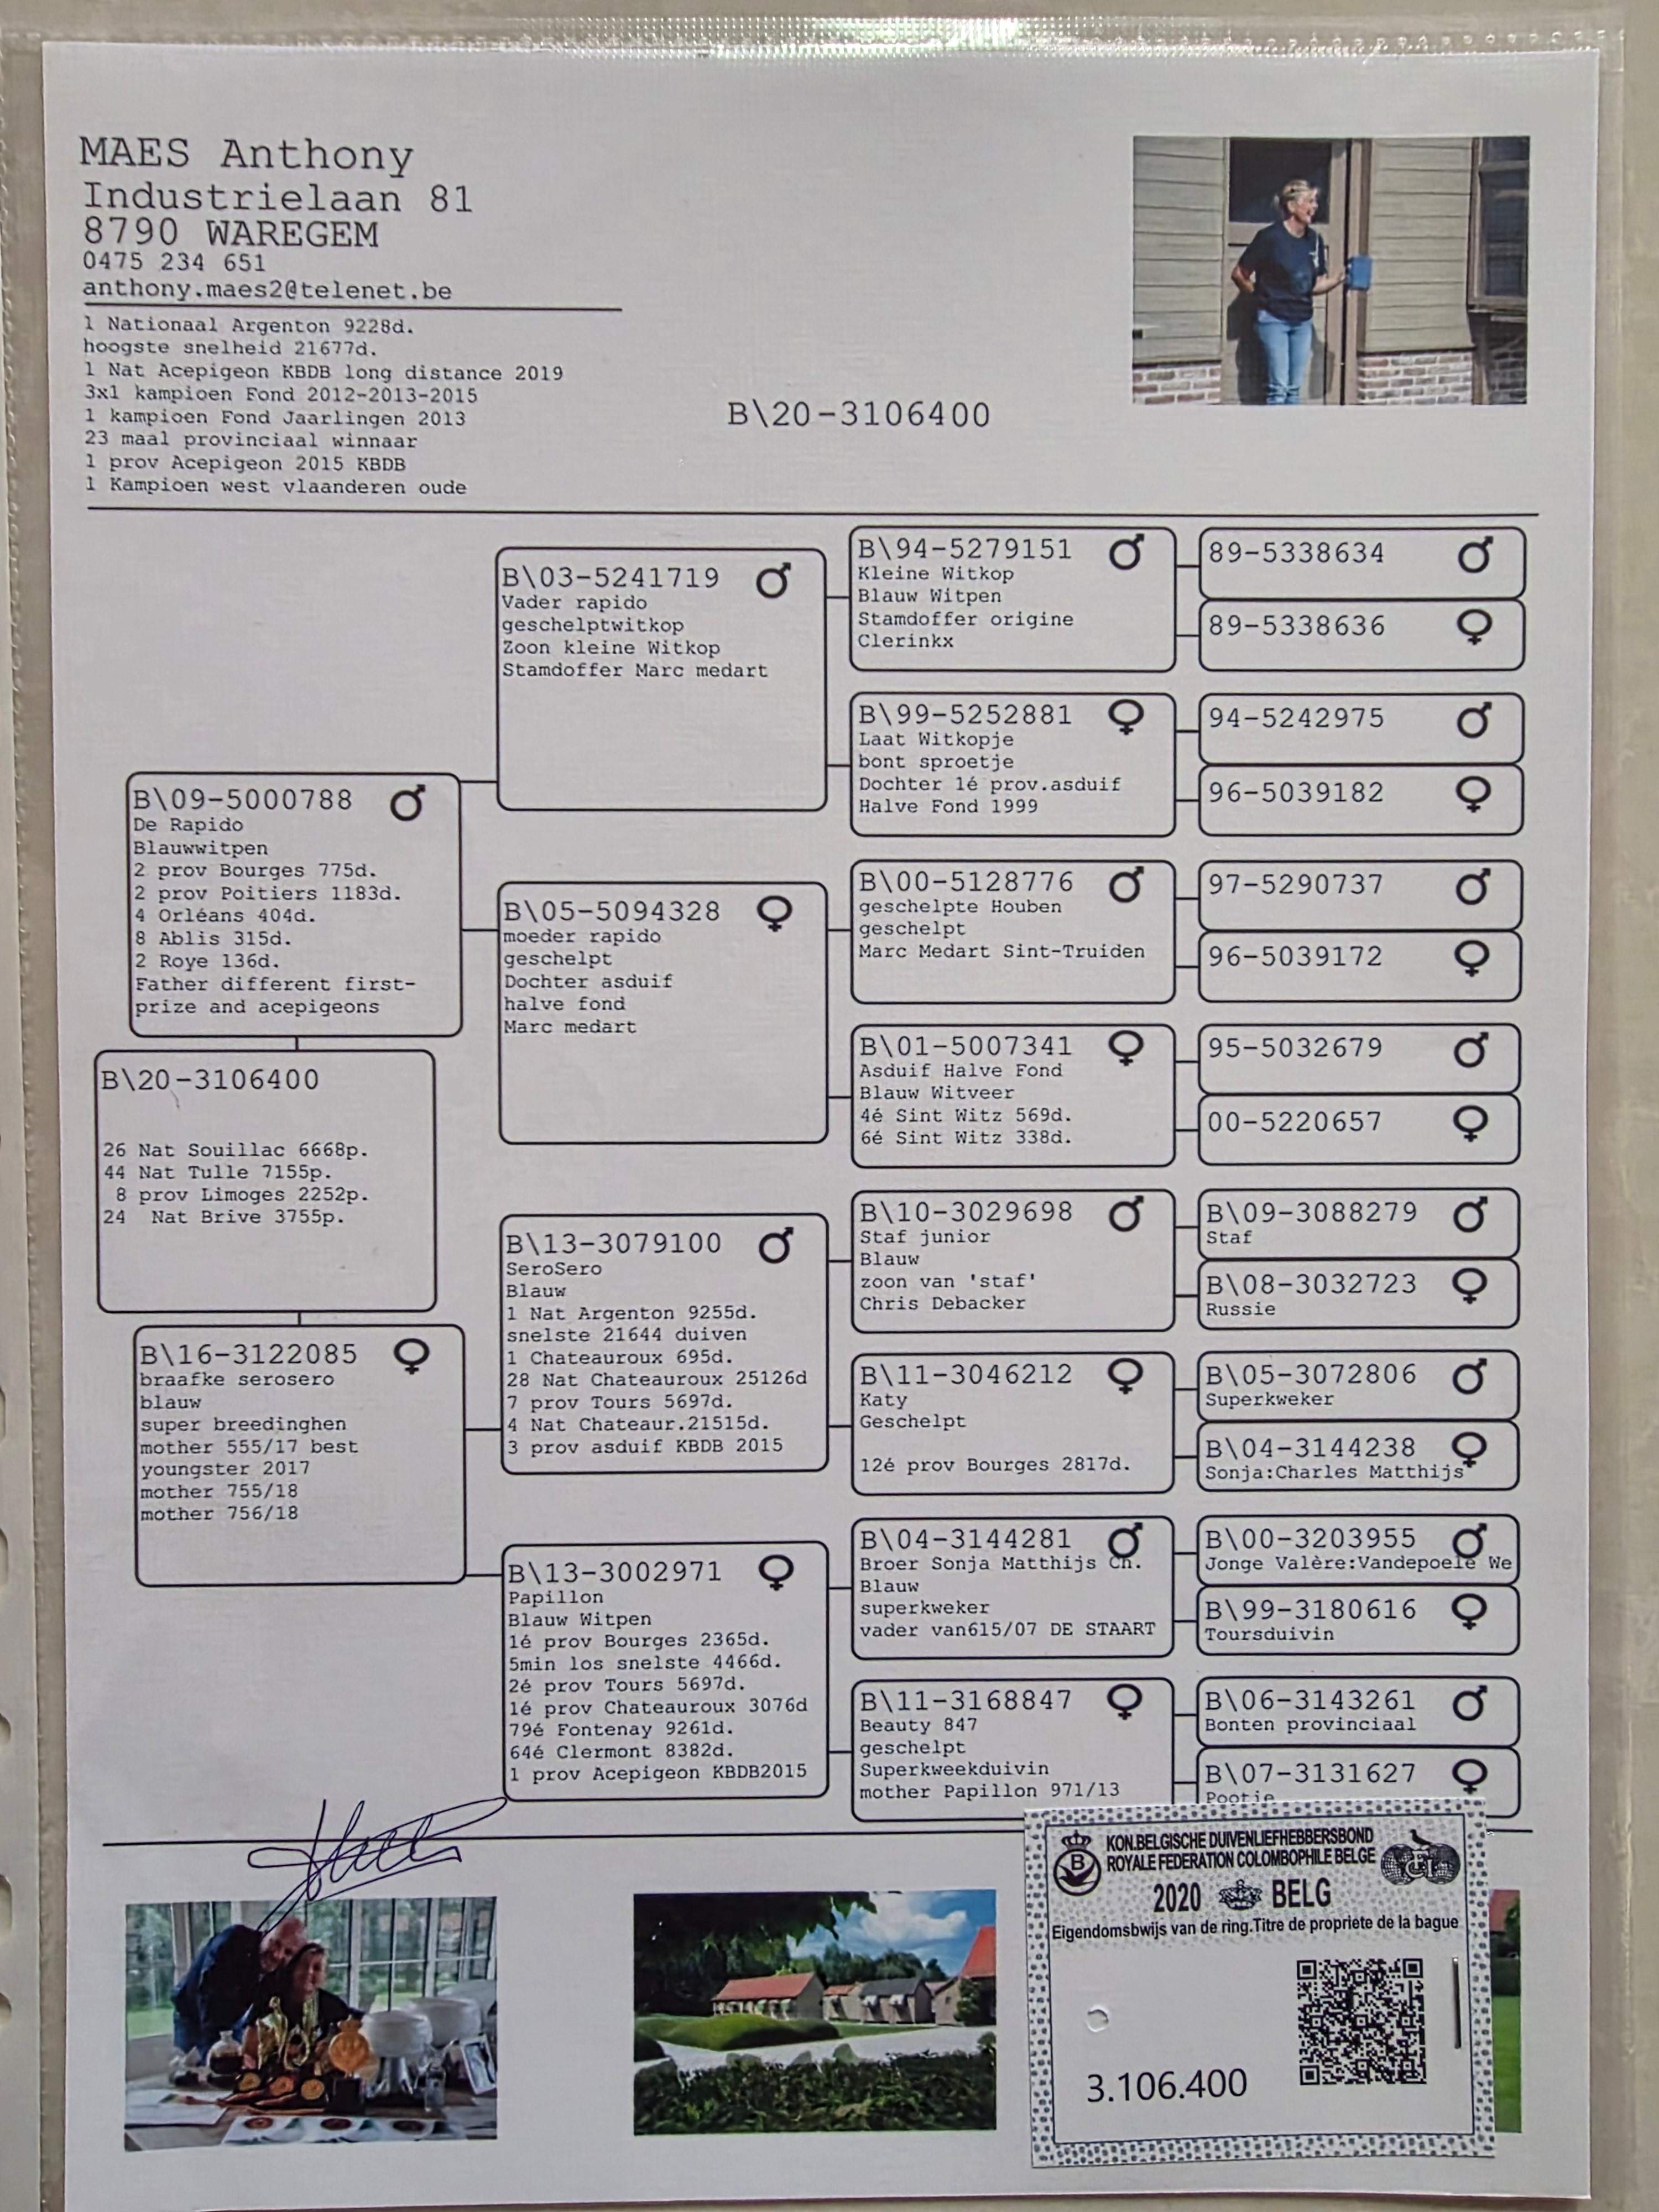 MAES Anthony
Industrielaan 81
8790 WAREGEM
0475 234 651
anthony.maes2@telenet.be
1 Nationaal Argenton 9228d.
hoogste snelheid 21677d.
1 Nat Acepigeon KBDB long distance 2019
3x1 kampioen Fond 2012-2013-2015
1 kampioen Fond Jaarlingen 2013
23 maal provinciaal winnaar
1 prov Acepigeon 2015 KBDB
1 Kampioen west vlaanderen oude
B\20-3106400
B\09-5000788 ♂
De Rapido
Blauwwitpen
2 prov Bourges 775d.
2 prov Poitiers 1183d.
4 Orléans 404d.
8 Ablis 315d.
2 Roye 136d.
Father different first-
prize and acepigeons
B\20-3106400
26 Nat Souillac 6668p.
44 Nat Tulle 7155p.
8 prov Limoges 2252p.
24 Nat Brive 3755p.
B\16-3122085 ♀
braafke serosero
blauw
super breedinghen
mother 555/17 best
youngster 2017
mother 755/18
mother 756/18
B\03-5241719 ♂
Vader rapido
geschelptwitkop
Zoon kleine Witkop
Stamdoffer Marc medart
B\05-5094328 ♀
moeder rapido
geschelpt
Dochter asduif
halve fond
Marc medart
B\13-3079100 ♂
SeroSero
Blauw
1 Nat Argenton 9255d.
snelste 21644 duiven
1 Chateauroux 695d.
28 Nat Chateauroux 25126d
7 prov Tours 5697d.
4 Nat Chateaur.21515d.
3 prov asduif KBDB 2015
B\13-3002971 ♀
Papillon
Blauw Witpen
1é prov Bourges 2365d.
5min los snelste 4466d.
2é prov Tours 5697d.
1é prov Chateauroux 3076d
79é Fontenay 9261d.
64é Clermont 8382d.
1 prov Acepigeon KBDB2015
B\94-5279151 ♂
Kleine Witkop
Blauw Witpen
Stamdoffer origine
Clerinkx
B\99-5252881 ♀
Laat Witkopje
bont sproetje
Dochter 1é prov.asduif
Halve Fond 1999
B\00-5128776 ♂
geschelpte Houben
geschelpt
Marc Medart Sint-Truiden
B\01-5007341 ♀
Asduif Halve Fond
Blauw Witveer
4é Sint Witz 569d.
6é Sint Witz 338d.
B\10-3029698 ♂
Staf junior
Blauw
zoon van 'staf'
Chris Debacker
B\11-3046212 ♀
Katy
Geschelpt
12é prov Bourges 2817d.
B\04-3144281 ♂
Broer Sonja Matthijs Ch.
Blauw
superkweker
vader van615/07 DE STAART
B\11-3168847 ♀
Beauty 847
geschelpt
Superkweekduivin
mother Papillon 971/13
89-5338634 ♂
89-5338636 ♀
94-5242975 ♂
96-5039182 ♀
97-5290737 ♂
96-5039172 ♀
95-5032679 ♂
00-5220657 ♀
B\09-3088279 ♂
Staf
B\08-3032723 ♀
Russie
B\05-3072806 ♂
Superkweker
B\04-3144238 ♀
Sonja:Charles Matthijs
B\00-3203955 ♂
Jonge Valère:Vandepoele We
B\99-3180616 ♀
Toursduivin
B\06-3143261 ♂
Bonten provinciaal
B\07-3131627 ♀
Pootje
KON.BELGISCHE DUIVENLIEFHEBBERSBOND
ROYALE FEDERATION COLOMBOPHILE BELGE
B
FCI
2020 BELG
Eigendomsbwijs van de ring.Titre de propriete de la bague
3.106.400